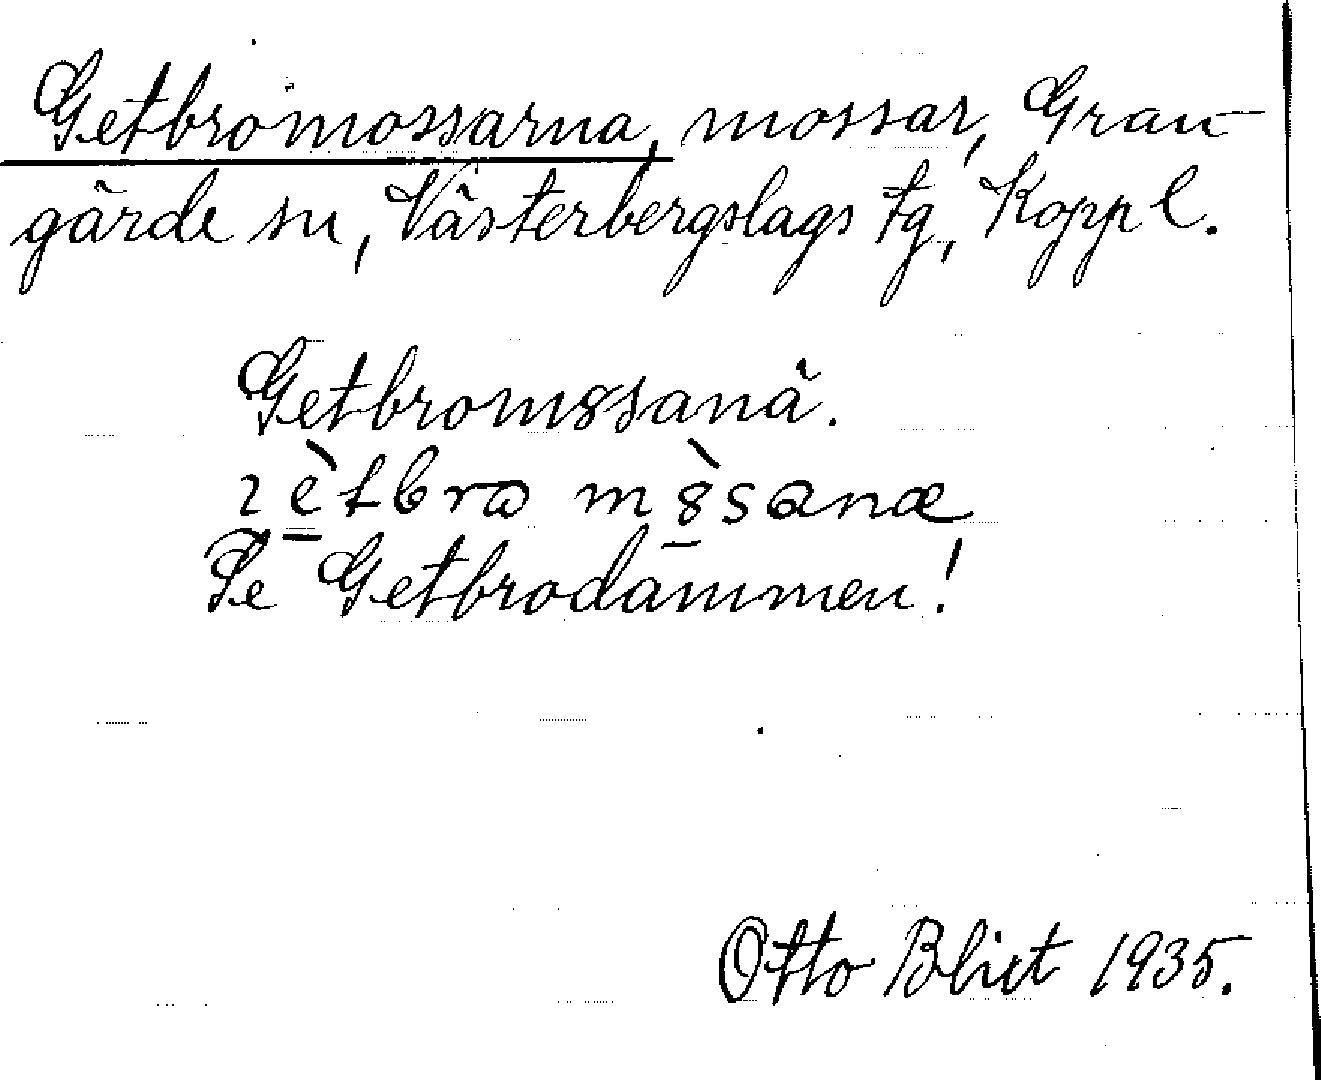 Getbromossarna, mossar, Gran-
gärde sn, Västerbergslags tg, Koppl.
Getbrom8ssanä.
Se Getbrodammen!
Otto Blixt 1935.